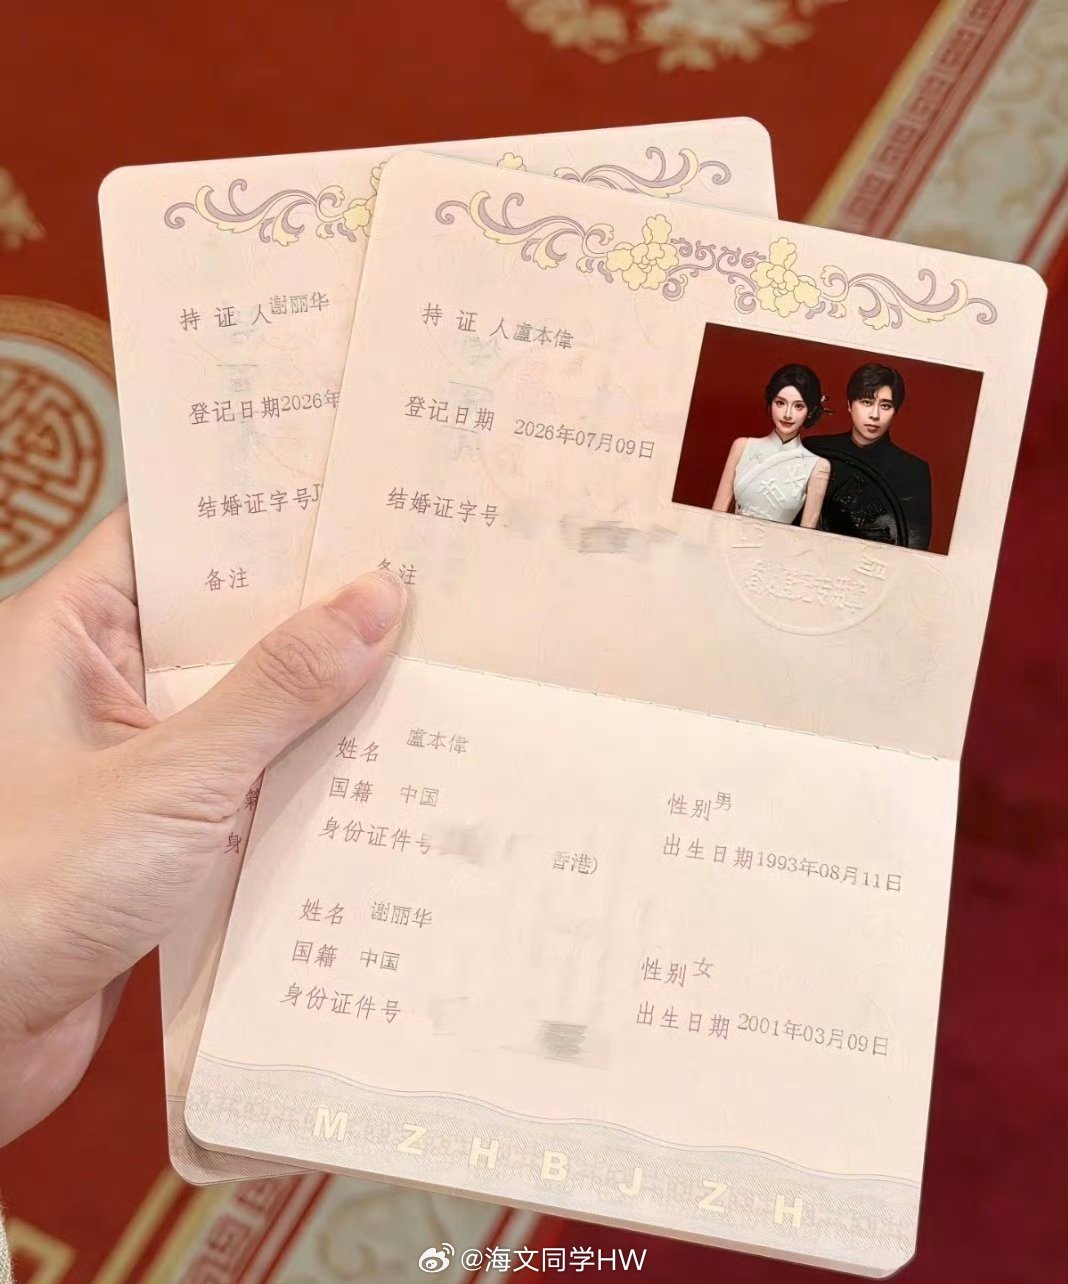 持证人谢丽华
登记日期2026年
结婚证字号J
备注
持证人盧本偉
登记日期 2026年07月09日
结婚证字号
备注
姓名 盧本偉
国籍 中国
性别男
身份证件号
香港)
出生日期1993年08月11日
姓名 谢丽华
国籍 中国
性别女
身份证件号
出生日期2001年03月09日
籍
身
MZHBJZH
@海文同学HW